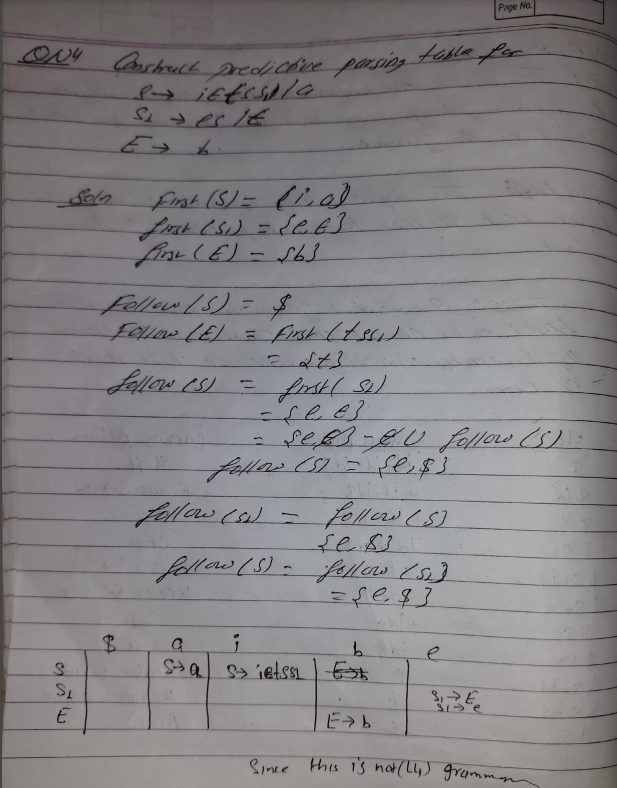 Page No.
QN4 Construct predictive parsing table for
S → iEtSS1/a
S1 → eS/ϵ
E → b.
Soln First(S) = {i,a}
first(S1) = {e,ϵ}
first(E) = {b}
Follow(S) = $
Follow(E) = First(tSS1)
= {t}
follow(S) = first(S1)
= {e,ϵ}
= {e,ϵ} - ϵ U follow(S)
follow(S) = {e,$}
follow(S1) = follow(S)
{e,$}
follow(S) = follow(S1}
= {e,$}
$ a i b e
S S→a S→iEtSS1 E→b
S1 S1→E
S1→e
E E→b
Since this is not(LL1) grammar